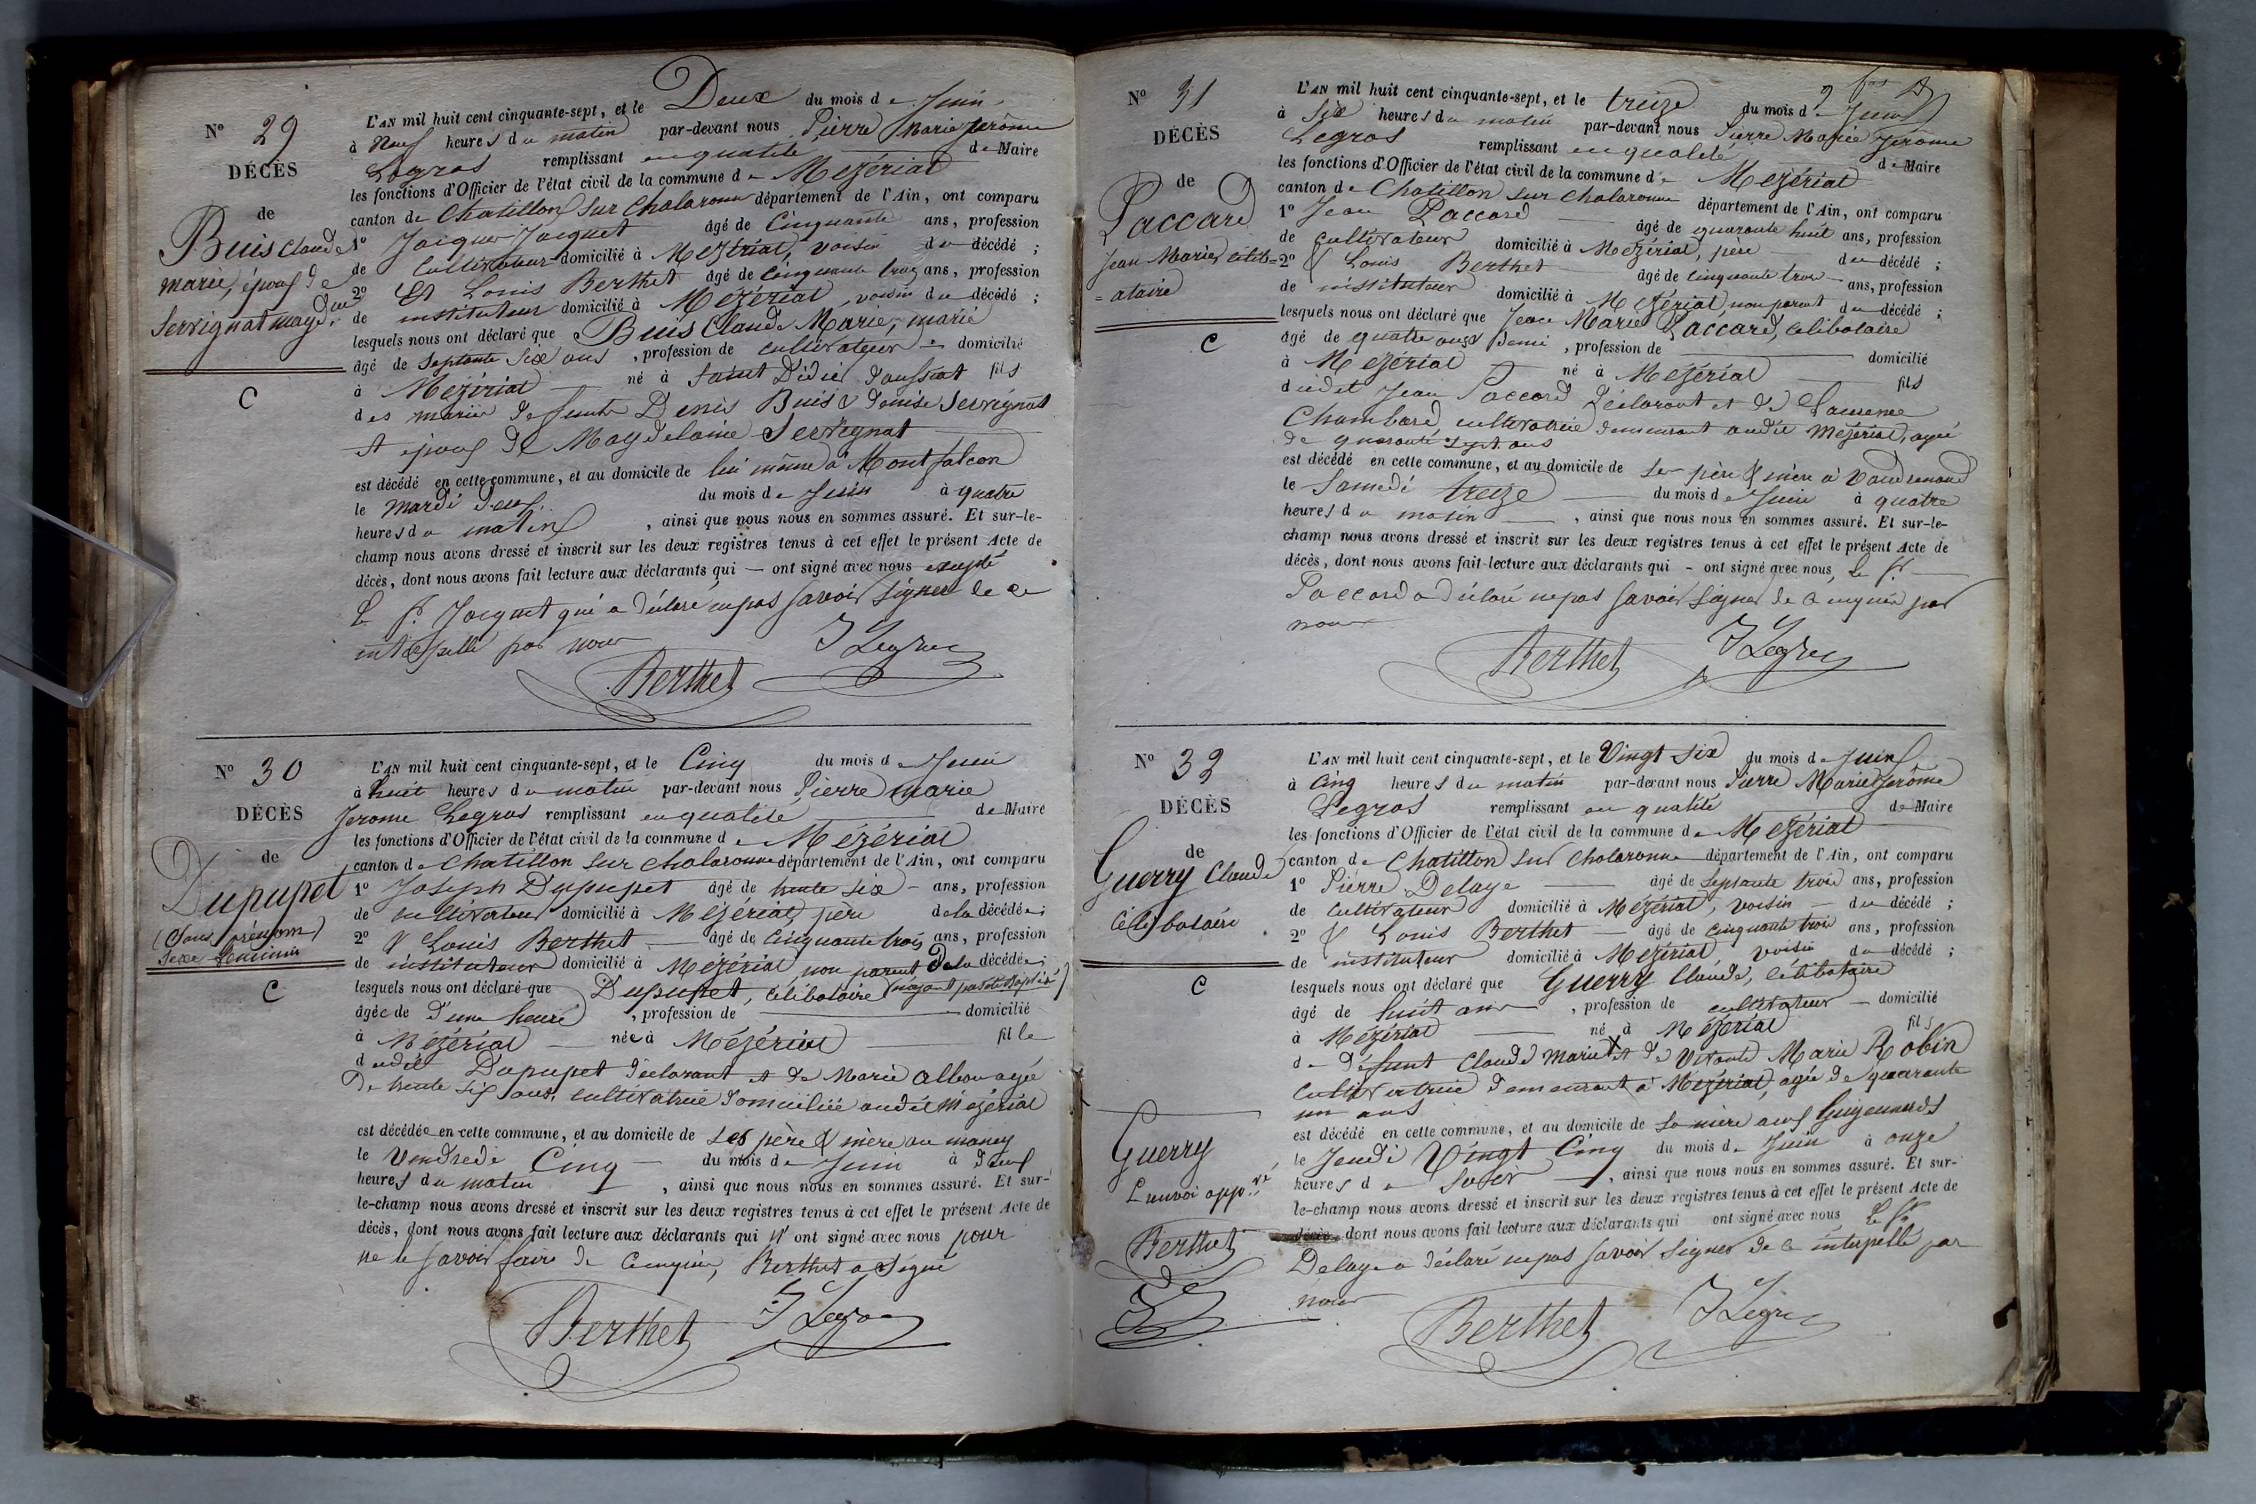 N° 29
DÉCÈS
de
Buis Claude
marie, époux de
Servignat magd.ne
C
L'AN mil huit cent cinquante-sept, et le Deux du mois de Juin
à Neuf heures du matin par-devant nous Pierre Marie Jérôme
Legros remplissant en qualité de Maire
les fonctions d'Officier de l'état civil de la commune de Mézériat
canton de Chatillon sur Chalaronne département de l'Ain, ont comparu
1° Jacques Jacquet âgé de Cinquante ans, profession
de Cultivateur domicilié à Mézériat, voisin du décédé ;
2° Et Louis Berthet âgé de cinquante trois ans, profession
de instituteur domicilié à Mézériat, voisin du décédé ;
lesquels nous ont déclaré que Buis Claude Marie, marié
âgé de Septante Six ans, profession de cultivateur domicilié
à Mézériat né à Saint Didier d'aussiat fils
des mariés défunts Denis Buis & Denise Servignat
et époux de Magdelaine Servignat
est décédé en cette commune, et au domicile de lui même à Montfalcon
le mardi deux du mois de Juin à quatre
heures du matin, ainsi que nous nous en sommes assuré. Et sur-le-
champ nous avons dressé et inscrit sur les deux registres tenus à cet effet le présent Acte de
décès, dont nous avons fait lecture aux déclarants qui — ont signé avec nous excepté
le s.r Jacquet qui a déclaré ne pas savoir signer de ce
interpellé par nous
Berthet J Legros
N° 30
DÉCÈS
de
Dupupet
(Sans prénom)
Sexe féminin
C
L'AN mil huit cent cinquante-sept, et le Cinq du mois de Juin
à huit heures du matin par-devant nous Pierre marie
Jerome Legros remplissant en qualité de Maire
les fonctions d'Officier de l'état civil de la commune de Mézériat
canton de Chatillon sur chalaronne département de l'Ain, ont comparu
1° Joseph Dupupet âgé de trente six ans, profession
de cultivateur domicilié à Mézériat, père de la décédée ;
2° & Louis Berthet âgé de cinquante trois ans, profession
de instituteur domicilié à Mézériat non parent de la décédée ;
lesquels nous ont déclaré que Dupupet, célibataire (n'ayant pas été Baptisé)
âgée de d'une heure, profession de — domicilié
à Mézériat née à Mézériat fille
dudit Dupupet déclarant et de Marie Albon agée
de trente six ans, cultivatrice domiciliée audit Mézériat
est décédée en cette commune, et au domicile de ses père & mère au maney
le Vendredi Cinq du mois de Juin à deux
heures du matin, ainsi que nous nous en sommes assuré. Et sur-
le-champ nous avons dressé et inscrit sur les deux registres tenus à cet effet le présent Acte de
décès, dont nous avons fait lecture aux déclarants qui n'ont signé avec nous pour
ne le savoir faire de ce enquis, Berthet a Signé
Berthet J Legros
N° 31
DÉCÈS
de
Paccard
Jean Marie célib=
=ataire
C
L'AN mil huit cent cinquante-sept, et le treize du mois de Juin
à Six heures du matin par-devant nous Pierre Marie Jérôme
Legros remplissant en qualité de Maire
les fonctions d'Officier de l'état civil de la commune de Mézériat
canton de Chatillon sur Chalaronne département de l'Ain, ont comparu
1° Jean Paccard âgé de quarante huit ans, profession
de cultivateur domicilié à Mézériat, père du décédé ;
2° & Louis Berthet âgé de cinquante trois ans, profession
de instituteur domicilié à Mézériat, non parent du décédé ;
lesquels nous ont déclaré que Jean Marie Paccard, célibataire
âgé de quatre ans & demi, profession de — domicilié
à Mézériat né à Mézériat fils
dudit Jean Paccard déclarant et de
Chambard, cultivatrice demeurant audit Mézériat, agée
de quarante sept ans
est décédé en cette commune, et au domicile de ses père & mère à Vaudrenand
le Samedi treize du mois de Juin à quatre
heures du matin, ainsi que nous nous en sommes assuré. Et sur-le-
champ nous avons dressé et inscrit sur les deux registres tenus à cet effet le présent Acte de
décès, dont nous avons fait lecture aux déclarants qui - ont signé avec nous, le s.r
Paccard a déclaré ne pas savoir signer de ce enquis par
nous
Berthet J Legros
N° 32
DÉCÈS
de
Guerry Claude
Célibataire
C
Guerry
L'envoi app.vé
Berthet
L'AN mil huit cent cinquante-sept, et le Vingt six du mois de Juin
à Cinq heures du matin par-devant nous Pierre Marie Jérôme
Legros remplissant en qualité de Maire
les fonctions d'Officier de l'état civil de la commune de Mézériat
canton de Chatillon sur Chalaronne département de l'Ain, ont comparu
1° Pierre Delaye âgé de septante trois ans, profession
de Cultivateur domicilié à Mézériat, voisin du décédé ;
2° & Louis Berthet âgé de cinquante trois ans, profession
de instituteur domicilié à Mézériat voisin du décédé ;
lesquels nous ont déclaré que Guerry Claude, célibataire
âgé de huit ans, profession de cultivateur domicilié
à Mézériat né à Mézériat fils
de Défunt Claude Marie X et de vivante Marie Robin
Cultivatrice demeurant à Mézériat, agée de quarante
un ans
est décédé en cette commune, et au domicile de sa mère aux Guigonnards
le Jeudi Vingt Cinq du mois de Juin à onze
heures du soir, ainsi que nous nous en sommes assuré. Et sur-
le-champ nous avons dressé et inscrit sur les deux registres tenus à cet effet le présent Acte de
décès, dont nous avons fait lecture aux déclarants qui ont signé avec nous Le s.r
Delaye a déclaré ne pas savoir signer de ce interpellé par
nous
Berthet J Legros